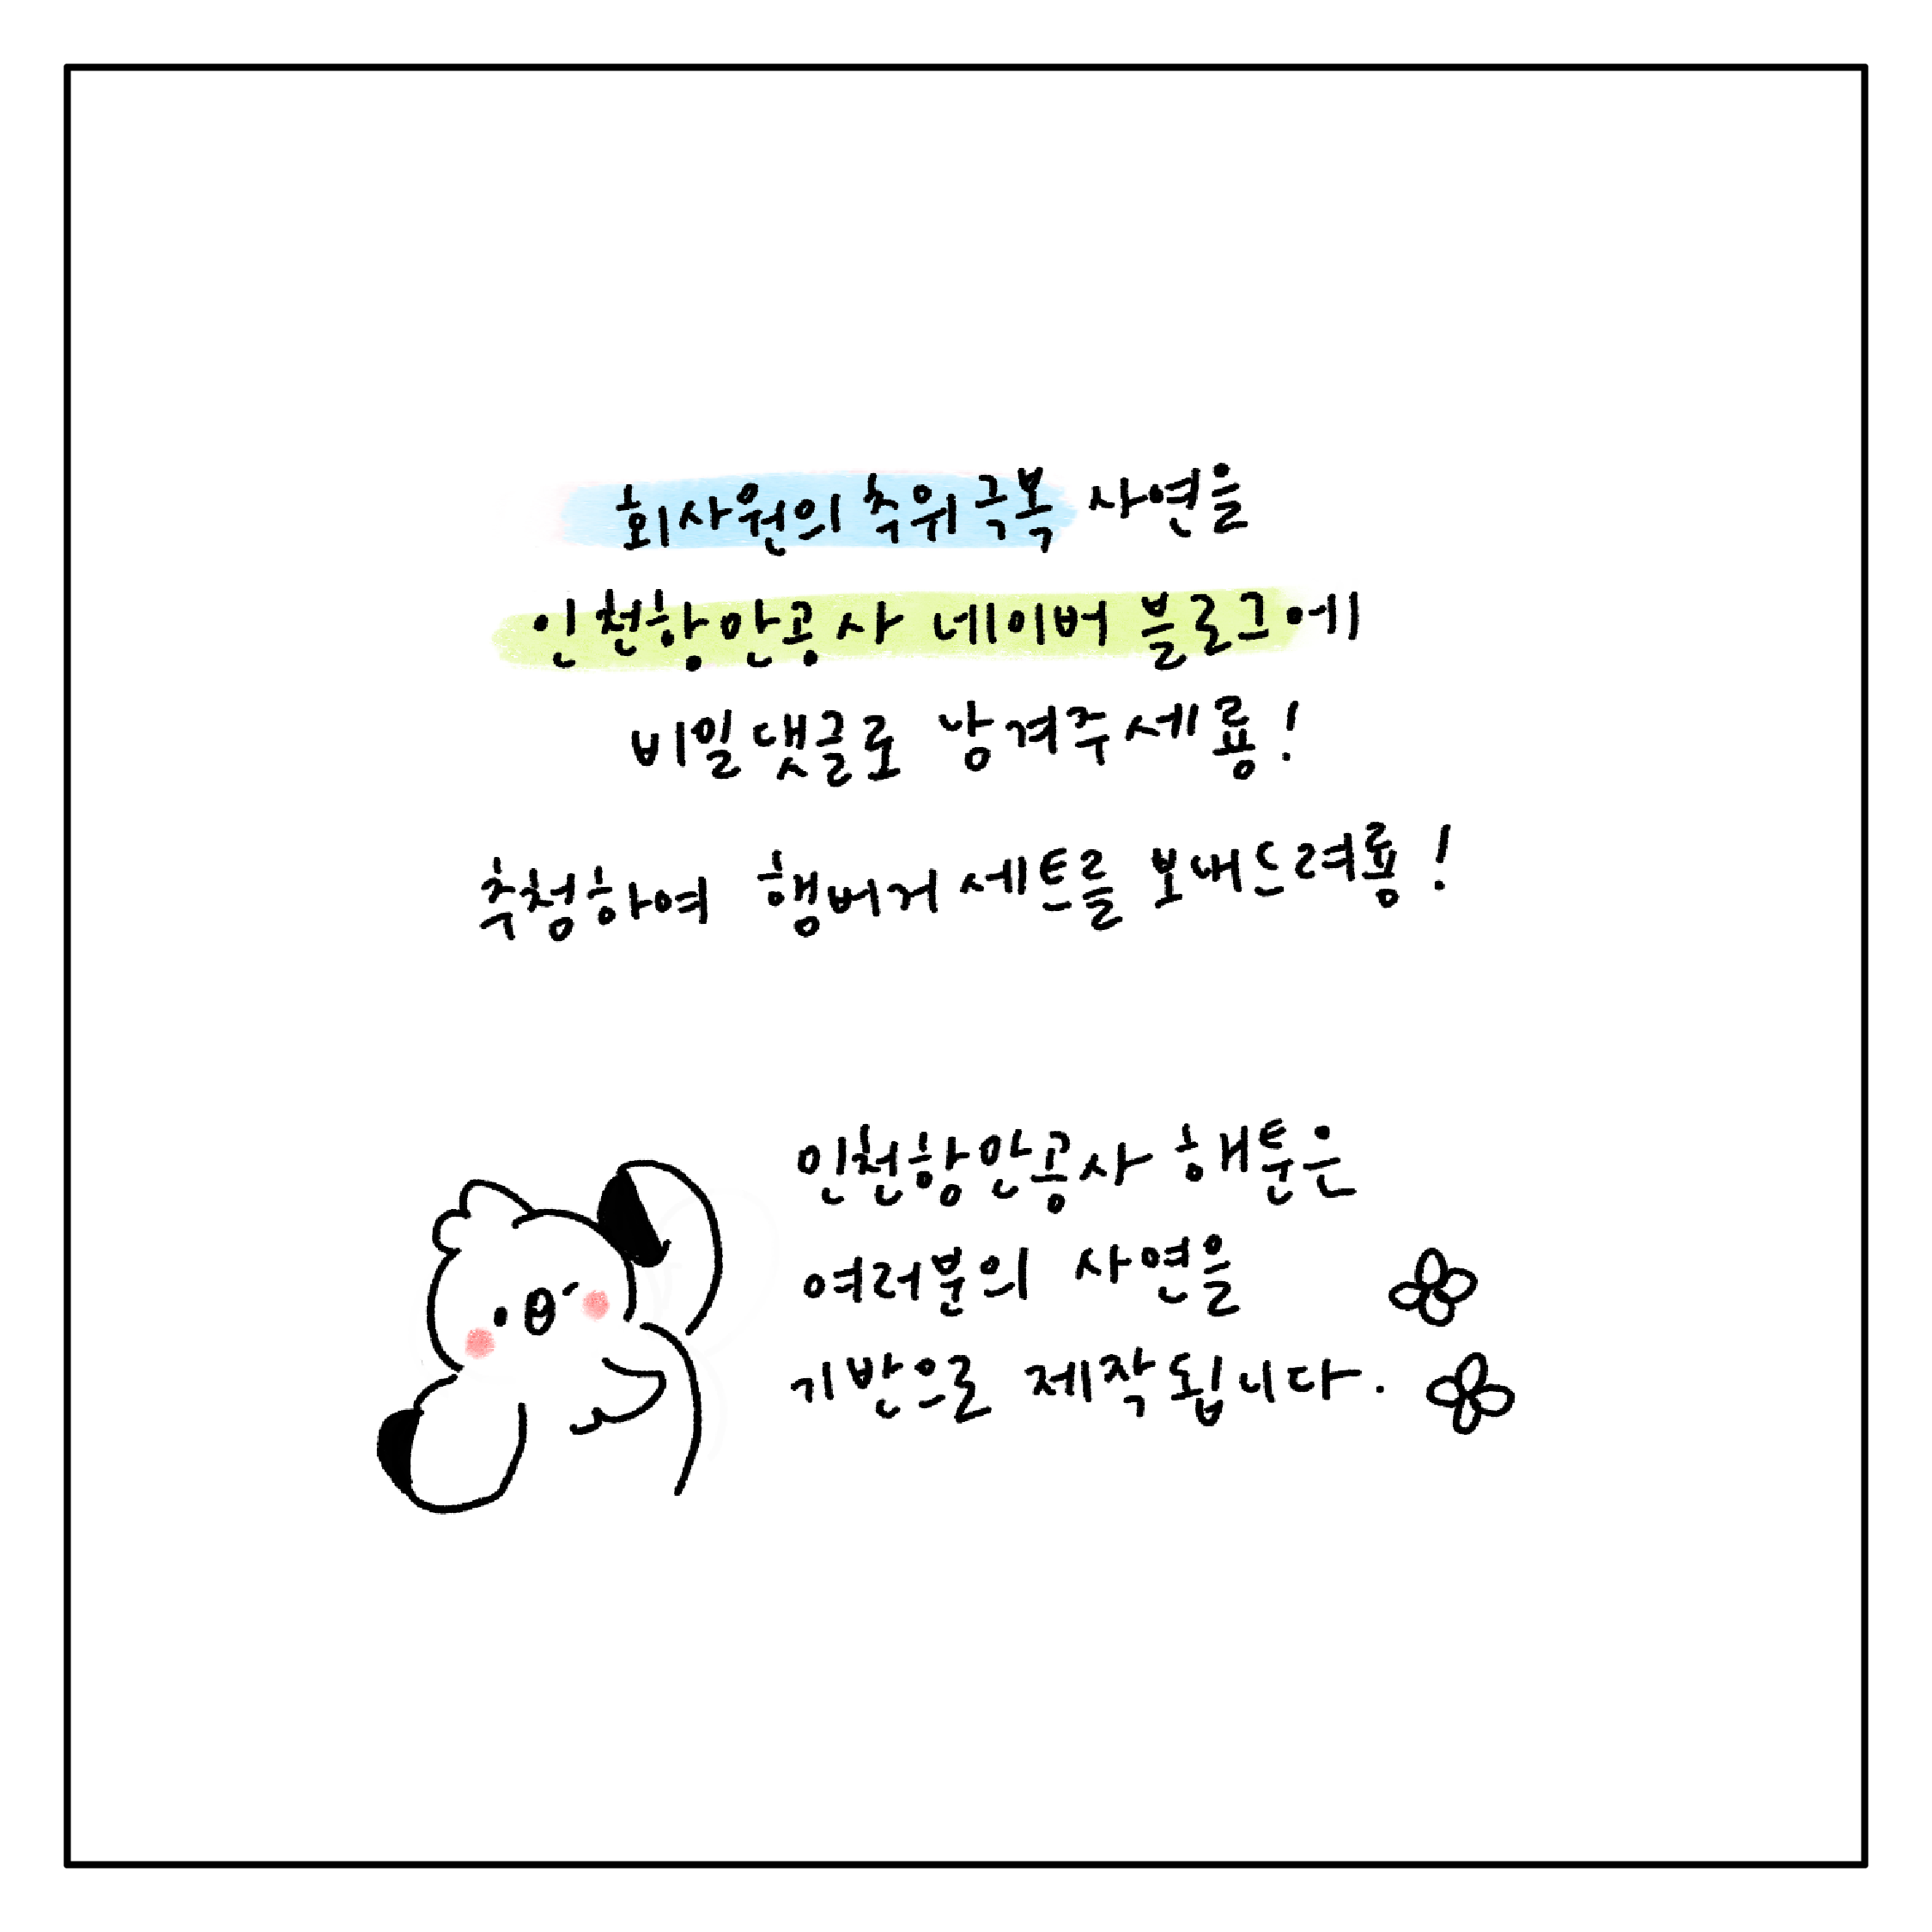 회사원의 추위극복 사연을
인천항만공사 네이버 블로그에
비밀댓글로 남겨주세룡!
추첨하여 햄버거세트를 보내드려룡!
인천항만공사 해툰은
여러분의 사연을
기반으로 제작됩니다.